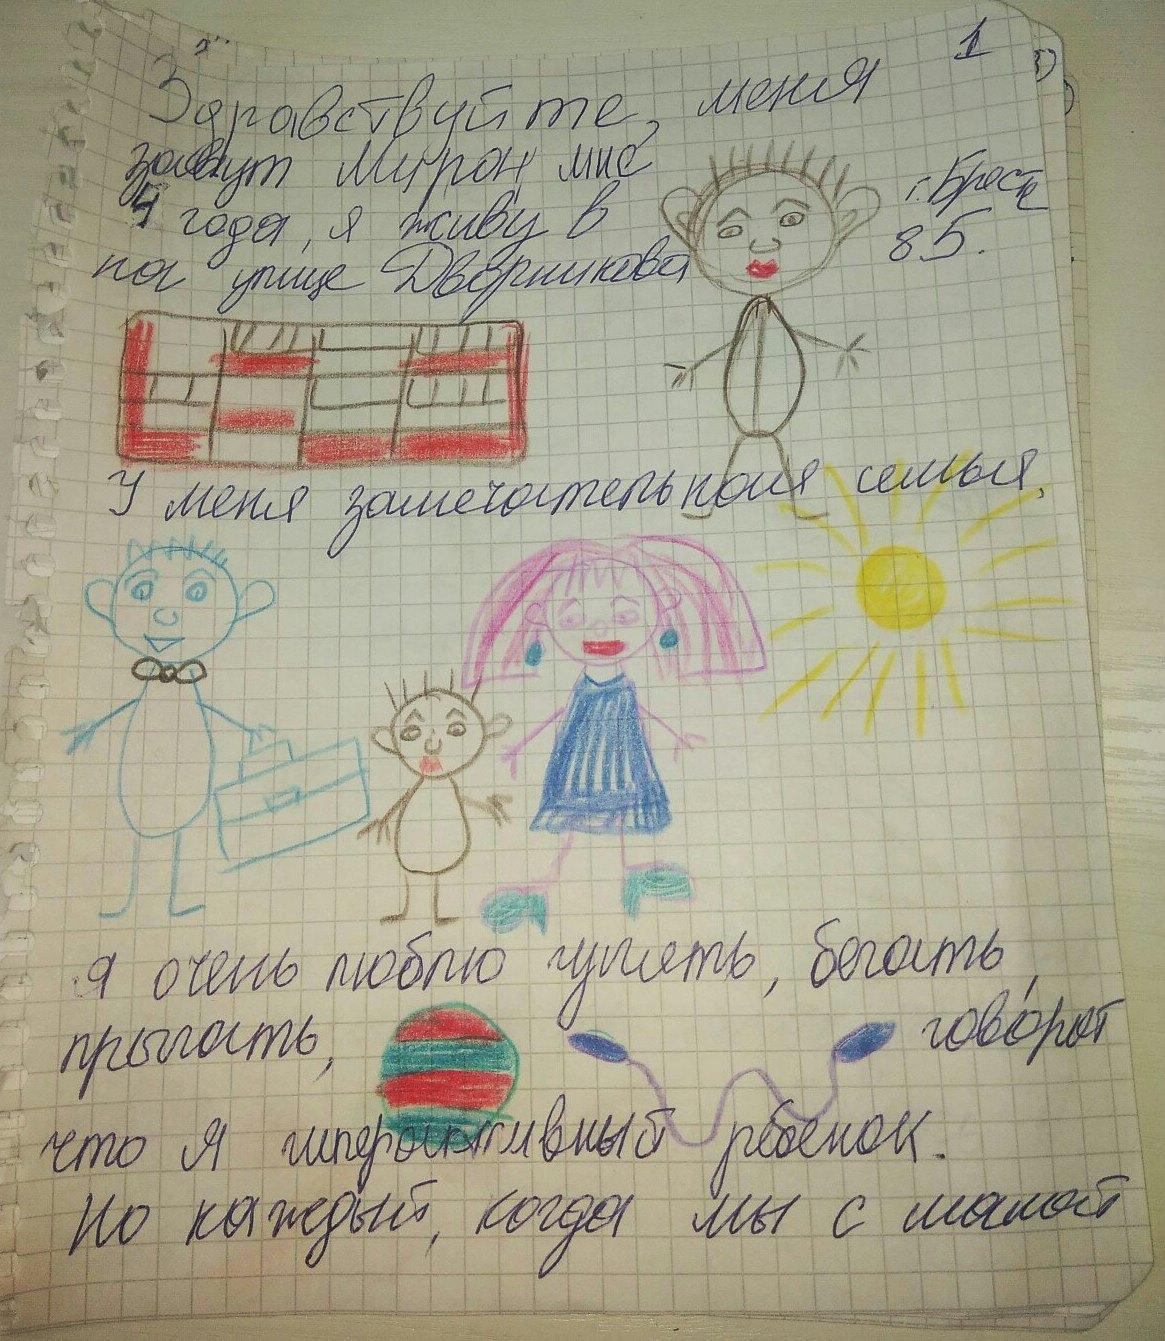 1
Здравствуйте, меня
зовут Мирон мне
4 года, я живу в г. Бресте
по улице Дворникова 85.
У меня замечательная семья.
Я очень люблю гулять, бегать,
прыгать, говорят
что я гиперактивный ребенок.
Но каждый, когда мы с мамой